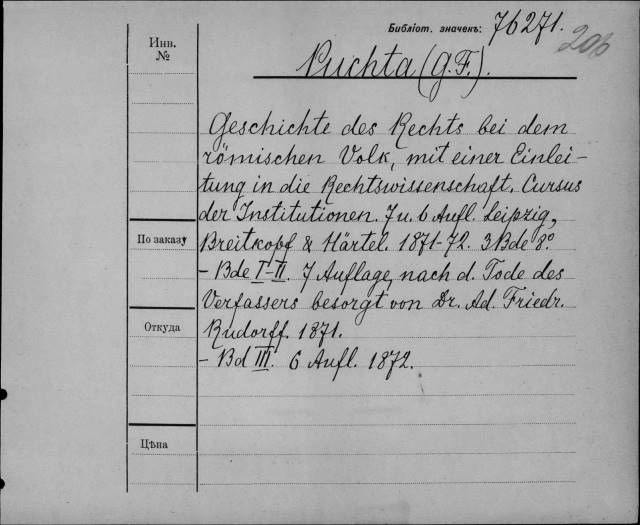 Библіот. значекъ: 76271.
206
Инв.
№
Puchta (G. F.).
Geschichte des Rechts bei dem
römischen Volk, mit einer Einlei-
tung in die Rechtswissenschaft. Cursus
der Institutionen. 7 u. 6 Aufl. Leipzig,
По заказу
Breitkopf & Härtel. 1871-72. 3 Bde 8º.
- Bde I-II. 7 Auflage, nach d. Tode des
Verfassers besorgt von Dr. Ad. Friedr.
Откуда
Rudorff. 1871.
- Bd III. 6 Aufl. 1872.
Цѣна